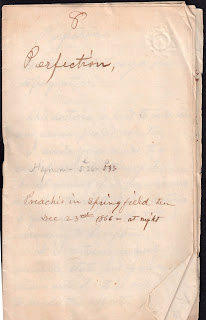 8
Perfection,
Hymns
Preach'd in Springfield
Dec 23rd 1866 – at night